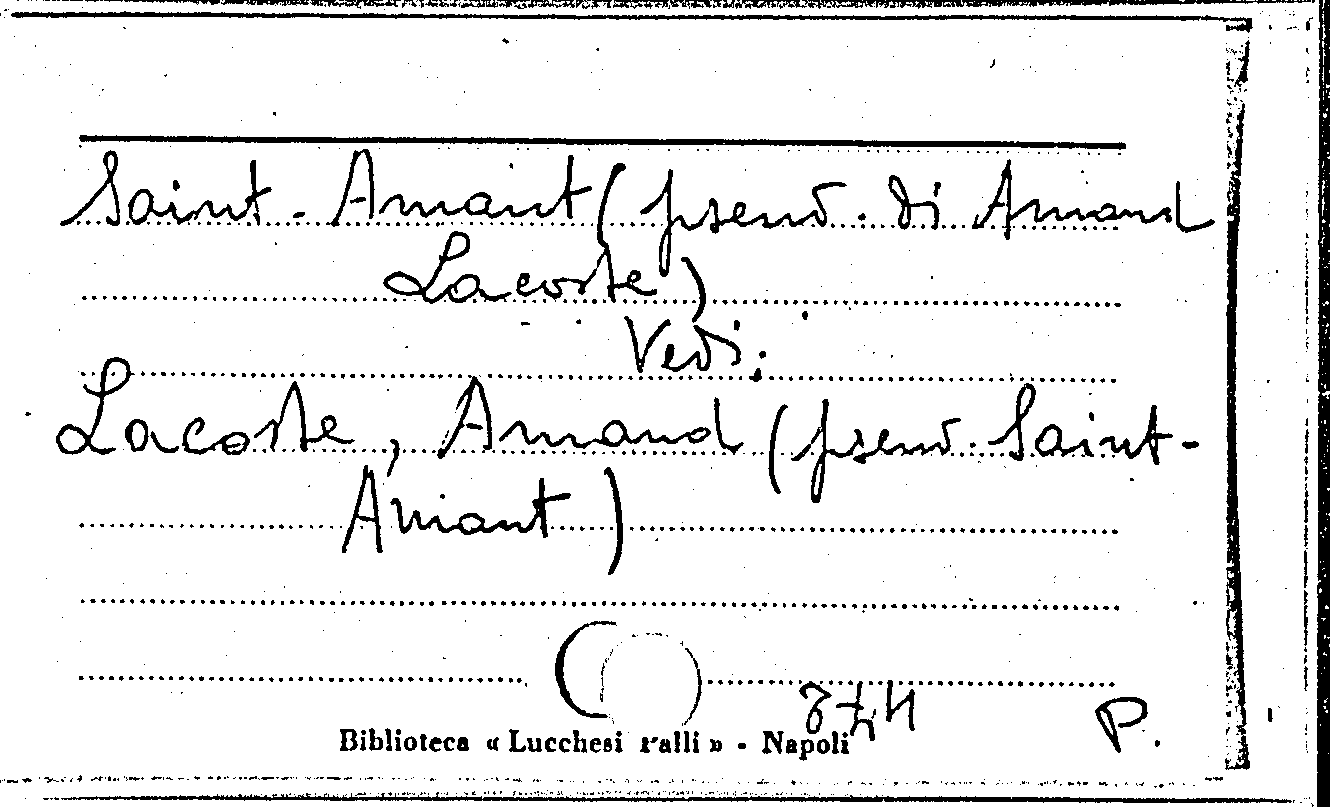 Saint-Amant (pseud. di Amand
Lacoste)
Vedi:
Lacoste, Amand (pseud. Saint-
Amant)
P.
Biblioteca « Lucchesi Palli » - Napoli